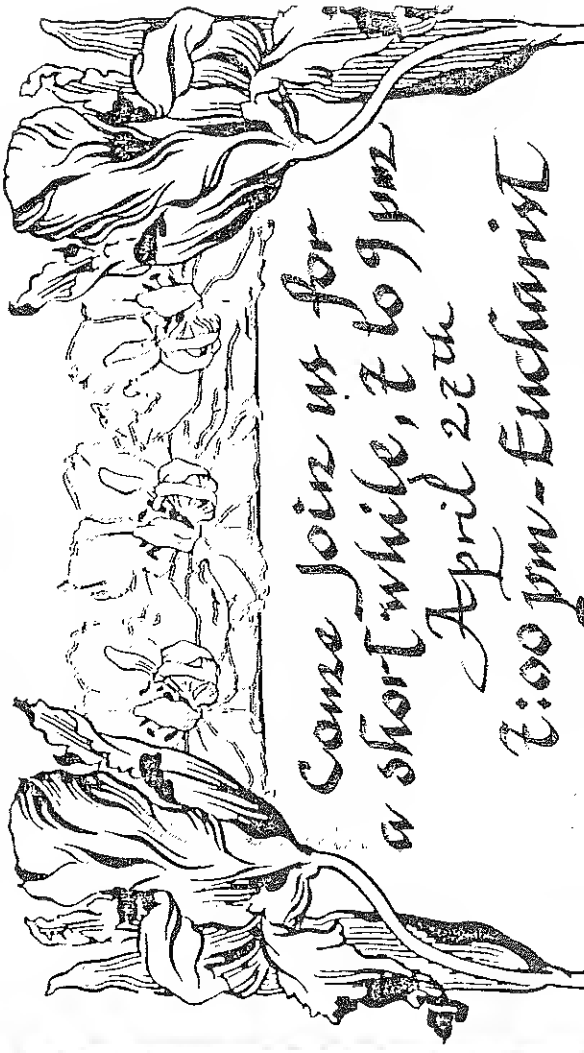 Come join us for
a short while, 7 to 9 pm
April 27th
7:00 pm - Eucharist